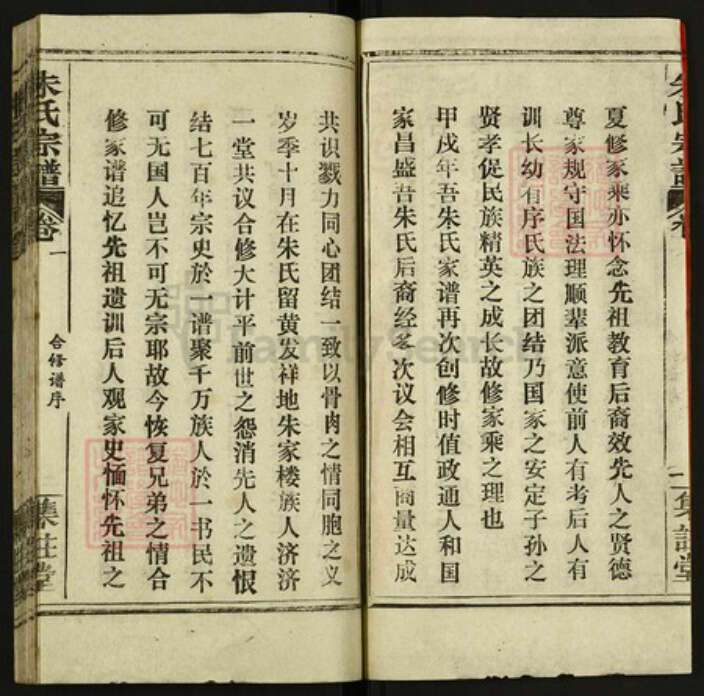 夏修家乘亦怀念先祖教育后裔效先人之贤德
尊家规守国法理顺辈派意使前人有考后人有
训长幼有序氏族之团结乃国家之安定子孙之
贤孝促民族精英之成长故修家乘之理也
甲戌年吾朱氏家谱再次创修时值政通人和国
家昌盛吾朱氏后裔经多次议会相互商量达成
共识戮力同心团结一致以骨肉之情同胞之义
岁季十月在朱氏留黄发祥地朱家楼族人济济
一堂共议合修大计平前世之怨消先人之遗恨
结七百年宗史於一谱聚千万族人於一书民不
可无国人岂不可无宗耶故今恢复兄弟之情合
修家谱追忆先祖遗训后人观家史愐怀先祖之
朱氏宗谱 卷一
合修谱序
FamilySearch